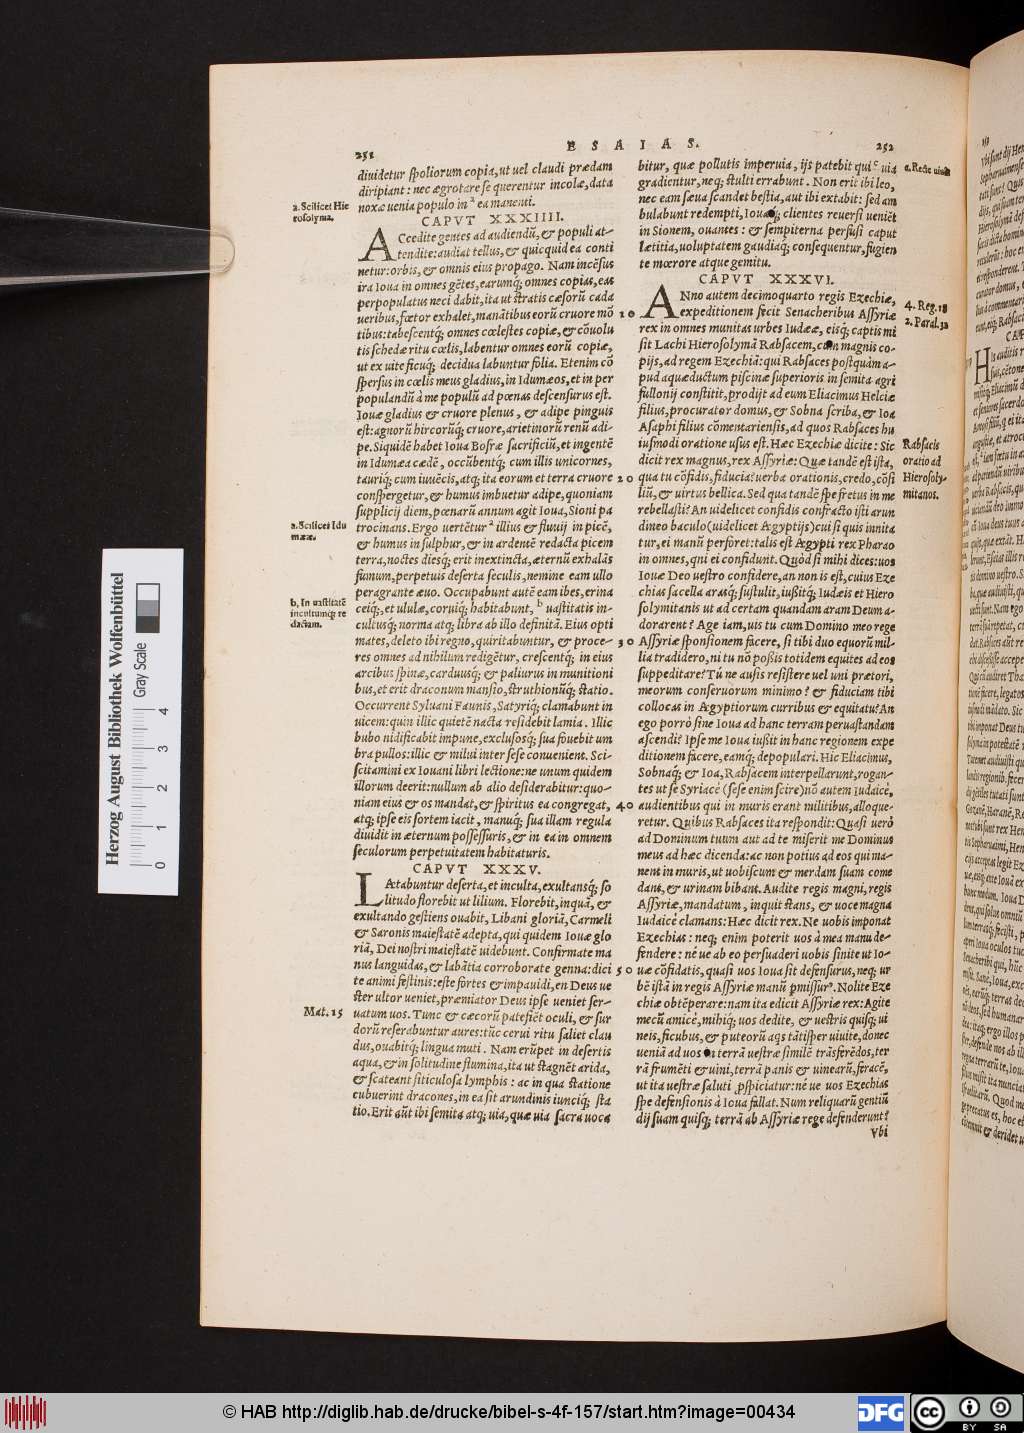 251
E S A I A S.
252
diuidetur spoliorum copia, ut uel claudi prædam
diripiant: nec ægrotare se querentur incolæ, data
noxæ uenia populo in ᵃ ea manenti.
a. Scilicet Hie
rosolyma.
CAPVT XXXIIII.
ACcedite gentes ad audiendū, & populi at-
tendite: audiat tellus, & quicquid ea conti
netur: orbis, & omnis eius propago. Nam incēsus
ira Ioua in omnes gētes, earumq́; omnes copias, eas
perpopulatus neci dabit, ita ut stratis cæsorū cada
ueribus, fœtor exhalet, manātibus eorū cruore mō
tibus: tabescentq́; omnes cœlestes copiæ, & cōuolu
tis schedæ ritu cœlis, labentur omnes eorū copiæ,
ut ex uite ficuq́; decidua labuntur folia. Etenim cō
spersus in cœlis meus gladius, in Idumæos, et in per
populandū à me populū ad pœnas descensurus est.
Iouæ gladius & cruore plenus, & adipe pinguis
est: agnorū hircorūq́; cruore, arietinorū renū adi-
pe. Siquidē habet Ioua Bosræ sacrificiū, et ingentē
in Idumæa cædē, occūbentq́; cum illis unicornes,
tauriq́; cum iuuēcis, atq; ita eorum et terra cruore
conspergetur, & humus imbuetur adipe, quoniam
supplicij diem, pœnarū annum agit Ioua, Sioni pa
trocinans. Ergo uertētur ᵃ illius & fluuij in picē,
& humus in sulphur, & in ardentē redacta picem
terra, noctes diesq́; erit inextincta, æternū exhalās
fumum, perpetuis deserta seculis, nemine eam ullo
peragrante æuo. Occupabunt autē eam ibes, erina
ceiq́;, et ululæ, coruiq́; habitabunt, ᵇ uastitatis in-
cultusq́; norma atq; libra ab illo definitā. Eius opti
mates, deleto ibi regno, quiritabuntur, & proce-
res omnes ad nihilum redigētur, crescentq́; in eius
arcibus spinæ, carduusq́; & paliurus in munitioni
bus, et erit draconum mansio, struthionūq́; statio.
Occurrent Syluani Faunis, Satyriq́; clamabunt in
uicem: quin illic quietē nacta residebit lamia. Illic
bubo nidificabit impune, exclusosq́; sua fouebit um
bra pullos: illic & milui inter sese conuenient. Sci-
scitamini ex Iouani libri lectione: ne unum quidem
illorum deerit: nullum ab alio desiderabitur: quo-
niam eius & os mandat, & spiritus ea congregat,
atq; ipse eis sortem iacit, manuq́; sua illam regula
diuidit in æternum possessuris, & in ea in omnem
seculorum perpetuitatem habitaturis.
a. Scilicet Idu
mææ.
b. In uastitatē
incultumq́; re
dactam.
CAPVT XXXV.
LÆtabuntur deserta, et inculta, exultansq́; so
litudo florebit ut lilium. Florebit, inquā, &
exultando gestiens ouabit, Libani gloriā, Carmeli
& Saronis maiestatē adepta, qui quidem Iouæ glo
riā, Dei nostri maiestatē uidebunt. Confirmate ma
nus languidas, & labātia corroborate genua: dici
te animi festinis: este fortes & impauidi, en Deus ue
ster ultor ueniet, præmiator Deus ipse ueniet ser-
uatum uos. Tunc & cæcorū patefiēt oculi, & sur
dorū reserabuntur aures: tūc cerui ritu saliet clau
dus, ouabitq́; lingua muti. Nam erūpet in desertis
aqua, & in solitudine flumina, ita ut stagnēt arida,
& scateant siticulosa lymphis: ac in qua statione
cubuerint dracones, in ea sit arundinis iunciq́; sta
tio. Erit aūt ibi semita atq; uia, quæ uia sacra uoca
Mat. 15
bitur, quæ pollutis imperuia, ijs patebit qui ᶜ uia
gradientur, neq; stulti errabunt. Non erit ibi leo,
nec eam sæua scandet bestia, aut ibi extabit: sed am
bulabunt redempti, Iouæq́; clientes reuersi ueniēt
in Sionem, ouantes: & sempiterna perfusi caput
lætitia, uoluptatem gaudiaq́; consequentur, fugien
te mœrore atque gemitu.
c. Recte uiuēt
CAPVT XXXVI.
ANno autem decimoquarto regis Ezechiæ,
10 expeditionem fecit Senacheribus Assyriæ
rex in omnes munitas urbes Iudææ, eisq́; captis mi
sit Lachi Hierosolymā Rabsacem, cum magnis co-
pijs, ad regem Ezechiā: qui Rabsaces postquàm a-
pud aquæductum piscinæ superioris in semita agri
fullonij constitit, prodijt ad eum Eliacimus Helciæ
filius, procurator domus, & Sobna scriba, & Ioa
Asaphi filius cōmentariensis, ad quos Rabsaces hu
iusmodi oratione usus est. Hæc Ezechiæ dicite: Sic
dicit rex magnus, rex Assyriæ: Quæ tandē est ista,
20 qua tu cōfidis, fiducia? uerba orationis, credo, cōsi
liū, & uirtus bellica. Sed qua tandē spe fretus in me
rebellasti? An uidelicet confidis confracto isti arun
dineo baculo (uidelicet Ægyptijs) cui si quis innita
tur, ei manū perforet: talis est Ægypti rex Pharao
in omnes, qui ei confidunt. Quòd si mihi dices: uos
Iouæ Deo uestro confidere, an non is est, cuius Eze
chias sacella arasq́; sustulit, iußitq́; Iudæis et Hiero
solymitanis ut ad certam quandam aram Deum a-
dorarent? Age iam, uis tu cum Domino meo rege
30 Assyriæ sponsionem facere, si tibi duo equorū mil-
lia tradidero, ni tu nō poßis totidem equites ad eos
suppeditare? Tú ne ausis resistere uel uni prætori,
meorum conseruorum minimo? & fiduciam tibi
collocas in Ægyptiorum curribus & equitatu? An
ego porrò sine Ioua ad hanc terram peruastandam
ascendi? Ipse me Ioua iußit in hanc regionem expe
ditionem facere, eamq́; depopulari. Hic Eliacimus,
Sobnaq́; & Ioa, Rabsacem interpellarunt, rogan-
tes ut se Syriacè (sese enim scire) nō autem Iudaicè,
40 audientibus qui in muris erant militibus, alloque-
retur. Quibus Rabsaces ita respondit: Quasi uerò
ad Dominum tuum aut ad te miserit me Dominus
meus ad hæc dicenda: ac non potius ad eos qui ma-
nent in muris, ut uobiscum & merdam suam come
dant, & urinam bibant. Audite regis magni, regis
Assyriæ, mandatum, inquit stans, & uoce magna
Iudaicè clamans: Hæc dicit rex. Ne uobis imponat
Ezechias: neq; enim poterit uos à mea manu de-
fendere: né ue ab eo persuaderi uobis sinite ut Io-
50 uæ cōfidatis, quasi uos Ioua sit defensurus, neq; ur
bē istā in regis Assyriæ manū ꝑmissur⁹. Nolite Eze
chiæ obtēperare: nam ita edicit Assyriæ rex: Agite
mecū amicè, mihiq́; uos dedite, & uestris quisq; ui
neis, ficubus, & puteorū aqs tātisper uiuite, donec
ueniā ad uos in terrā uestræ similē trāsferēdos, ter
rā frumēti & uini, terrā panis & uinearū, feracē,
ut ita uestræ saluti ꝓspiciatur: né ue uos Ezechias
spe defensionis à Ioua fallat. Num reliquarū gentiū
dij suam quisq; terrā ab Assyriæ rege defenderunt?
Vbi
4. Reg. 18
2. Paral. 32
Rabsacis
oratio ad
Hierosoly-
mitanos.
Herzog August Bibliothek Wolfenbüttel
Gray Scale
0 1 2 3 4
© HAB http://diglib.hab.de/drucke/bibel-s-4f-157/start.htm?image=00434
DFG
cc
BY SA